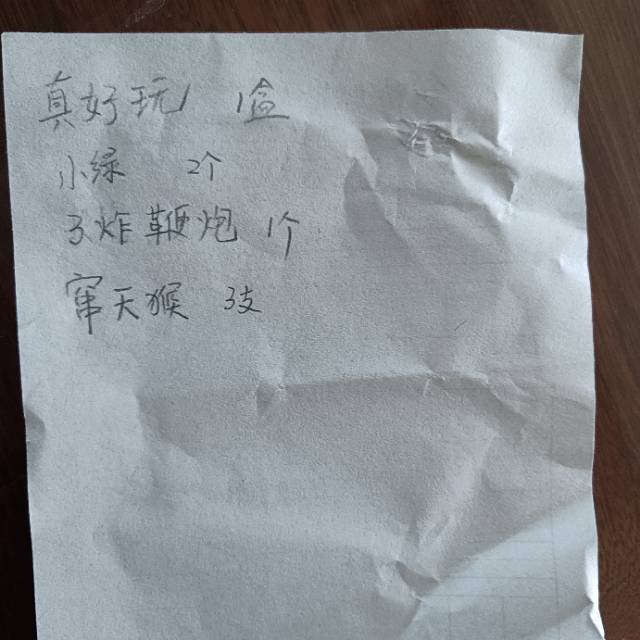 真好玩 1盒
小绿 2个
子炸鞭炮 1个
窜天猴 3支